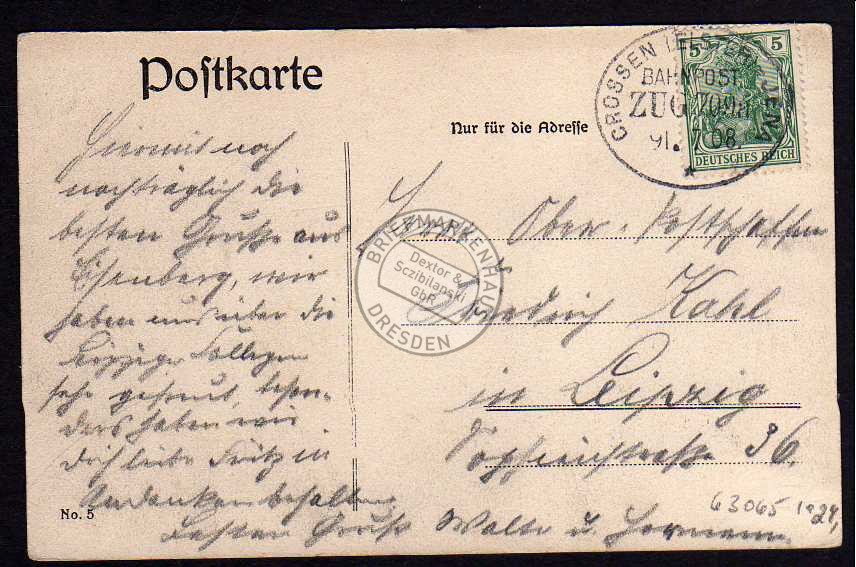 Postkarte
Nur für die Adresse
CROSSEN (ELSTER) JENA
BAHNPOST
ZUG 709a
7.08
5 5
DEUTSCHES REICH
Hiermit noch
nachträglich die
besten Grüße aus
Eisenberg, wir
haben uns über die
Leipziger Kollegen
sehr gefreut, beson-
ders haben wir
Dich liebe Fritz in
Andenken behalten.
Besten Gruß Walter u. Hermann.
Herrn Ober-Postschaffner
Friedrich Kahl
in Leipzig
36.
BRIEFMARKENHAUS
Dextor &
Sczibilanski
GbR
DRESDEN
No. 5
63065